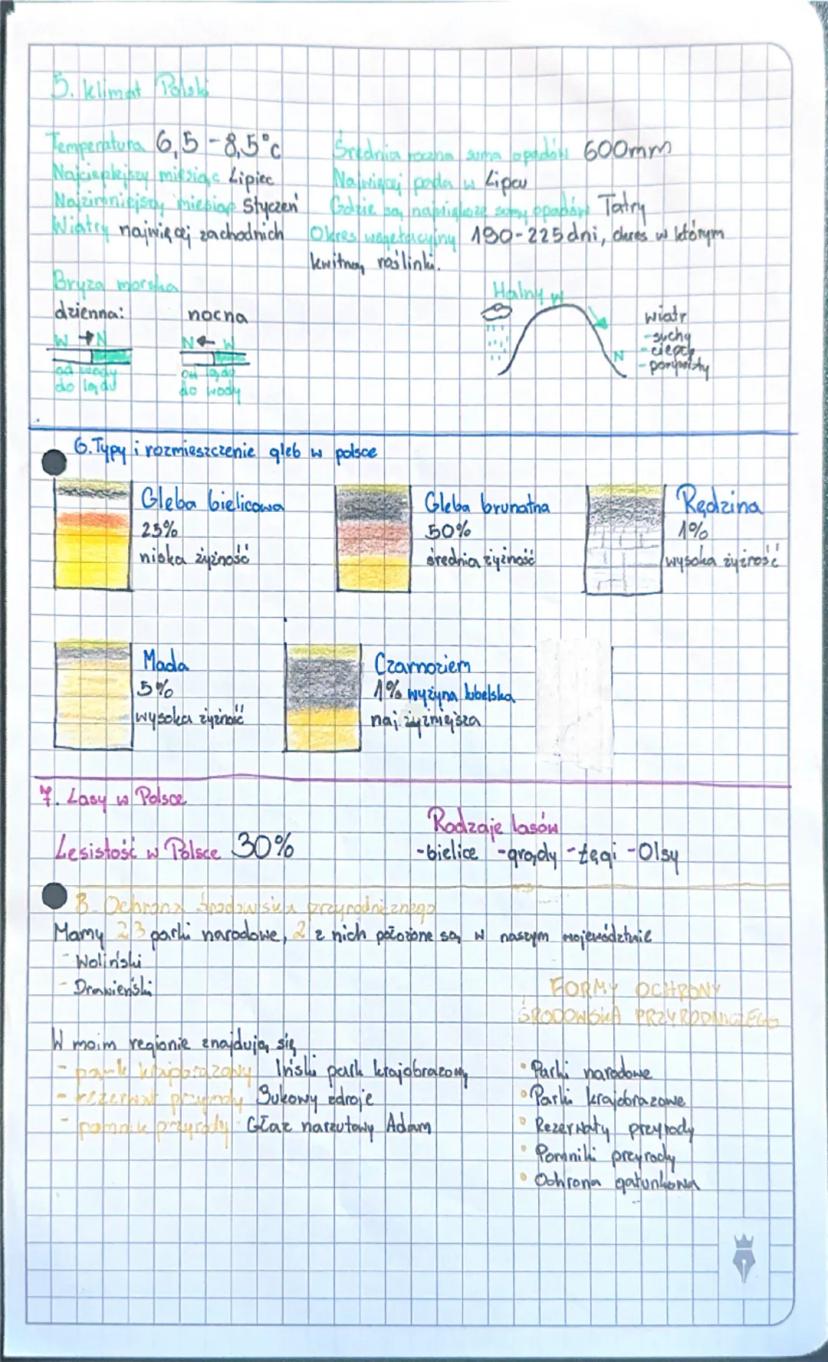 5. klimat Polski
Temperatura 6,5-8,5°c
Najcieplejszy miesiąc Lipiec
Najzimniejszy miesiąc Styczeń
Wiatry najwięcej zachodnich
Średnia roczna suma opadów 600mm
Najwięcej pada w Lipcu
Gdzie są największe sumy opadów Tatry
Okres wegetacyjny 190-225dni, okres w którym
kwitną roślinki.
Bryza morska
dzienna:
W → N
od wody
do lądu
nocna
N ← W
od lądu
do wody
Halny W
N
wiatr
-suchy
-ciepły
-porywisty
6.Typy i rozmieszczenie gleb w polsce
Gleba bielicowa
25%
niska żyzność
Gleba brunatna
50%
średnia żyzność
Rędzina
1%
wysoka żyzność
Mada
5%
wysoka żyzność
Czarnoziem
1% wyżyna lubelska
najżyźniejsza
7. Lasy w Polsce
Lesistość w Polsce 30%
Rodzaje lasów
-bielice -grądy -Łęgi -Olsy
8. Ochrona środowiska przyrodniczego
Mamy 23 parki narodowe, 2 z nich położone są w naszym województwie
- Woliński
- Drawieński
W moim regionie znajdują się
- park krajobrazowy Iński park krajobrazowy
- rezerwat przyrody Bukowy zdroje
- pomnik przyrody Głaz narzutowy Adam
FORMY OCHRONY
ŚRODOWISKA PRZYRODNICZEGO
• Parki narodowe
• Parki krajobrazowe
• Rezerwaty przyrody
• Pomniki przyrody
• Ochrona gatunkowa